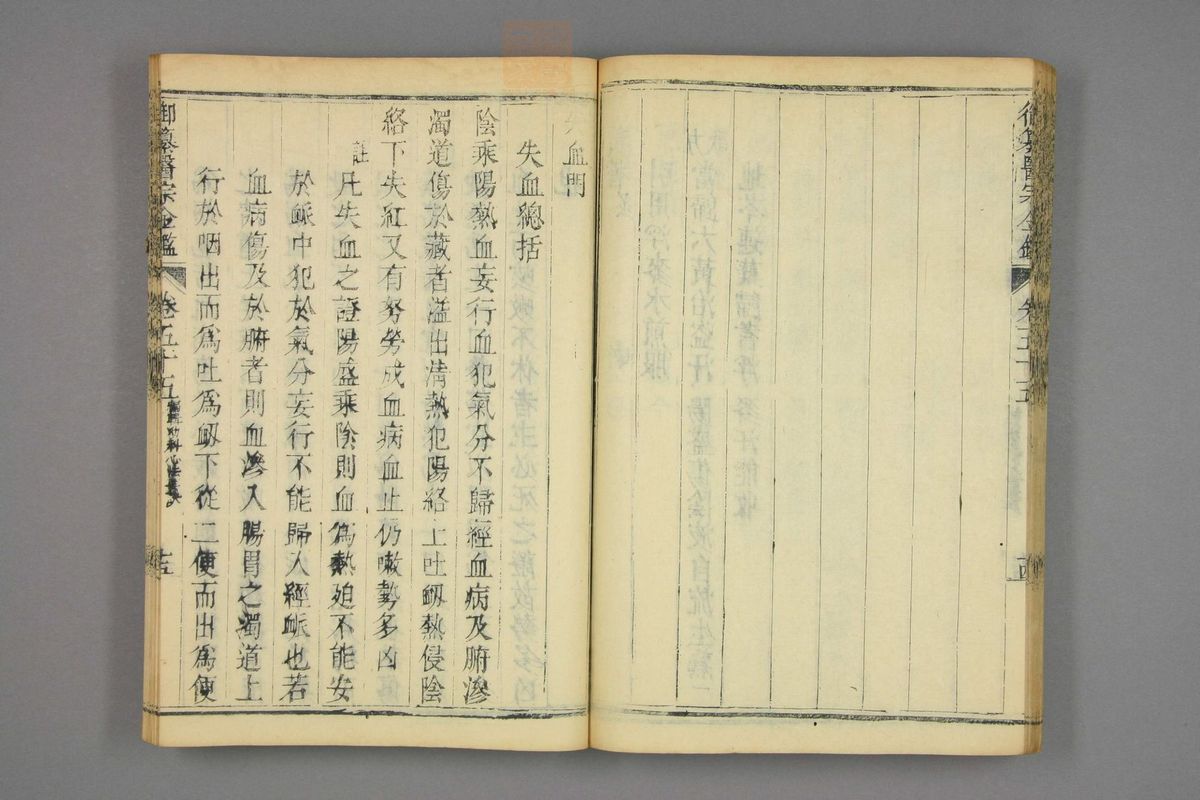 御纂醫宗金鑑 卷五十五 十四
失血門
失血總括
陰乘陽熱血妄行血犯氣分不歸經血病及腑滲
濁道傷於藏者溢出淸熱犯陽絡上吐衂熱侵陰
絡下失紅又有努勞成血病血止仍嗽勢多凶
註
凡失血之證陽盛乘陰則血爲熱廹不能安
於脈中犯於氣分妄行不能歸入經脈也若
血病傷及於腑者則血滲入腸胃之濁道上
行於咽出而爲吐爲衂下從二便而出爲便
御纂醫宗金鑑 卷五十五 編輯幼科心法要訣 十五